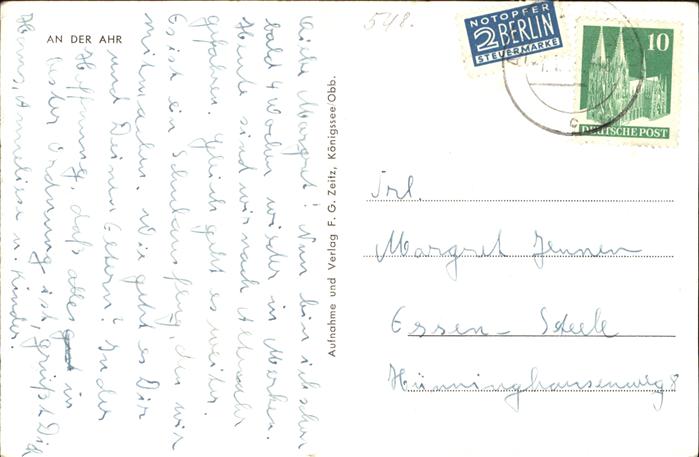 AN DER AHR
548.
NOTOPFER
2 BERLIN
STEUERMARKE
10
DEUTSCHE POST
c
Liebe Margret! Nun bin ich schon
bald 4 Wochen wieder in Merken.
Heute sind wir nach Altenahr
gefahren. Gleich geht es weiter.
Es ist ein Schulausflug, den wir
mitmachen. Wie geht es Dir
und Deinen Eltern? In der
Hoffnung, daß alles in
bester Ordnung ist, grüßt Dich
Hanns, Anneliese u. Kinder.
Aufnahme und Verlag F. G. Zeitz, Königssee/Obb.
Frl.
Margret Jennen
Essen-Steele
Hünninghausenweg 8